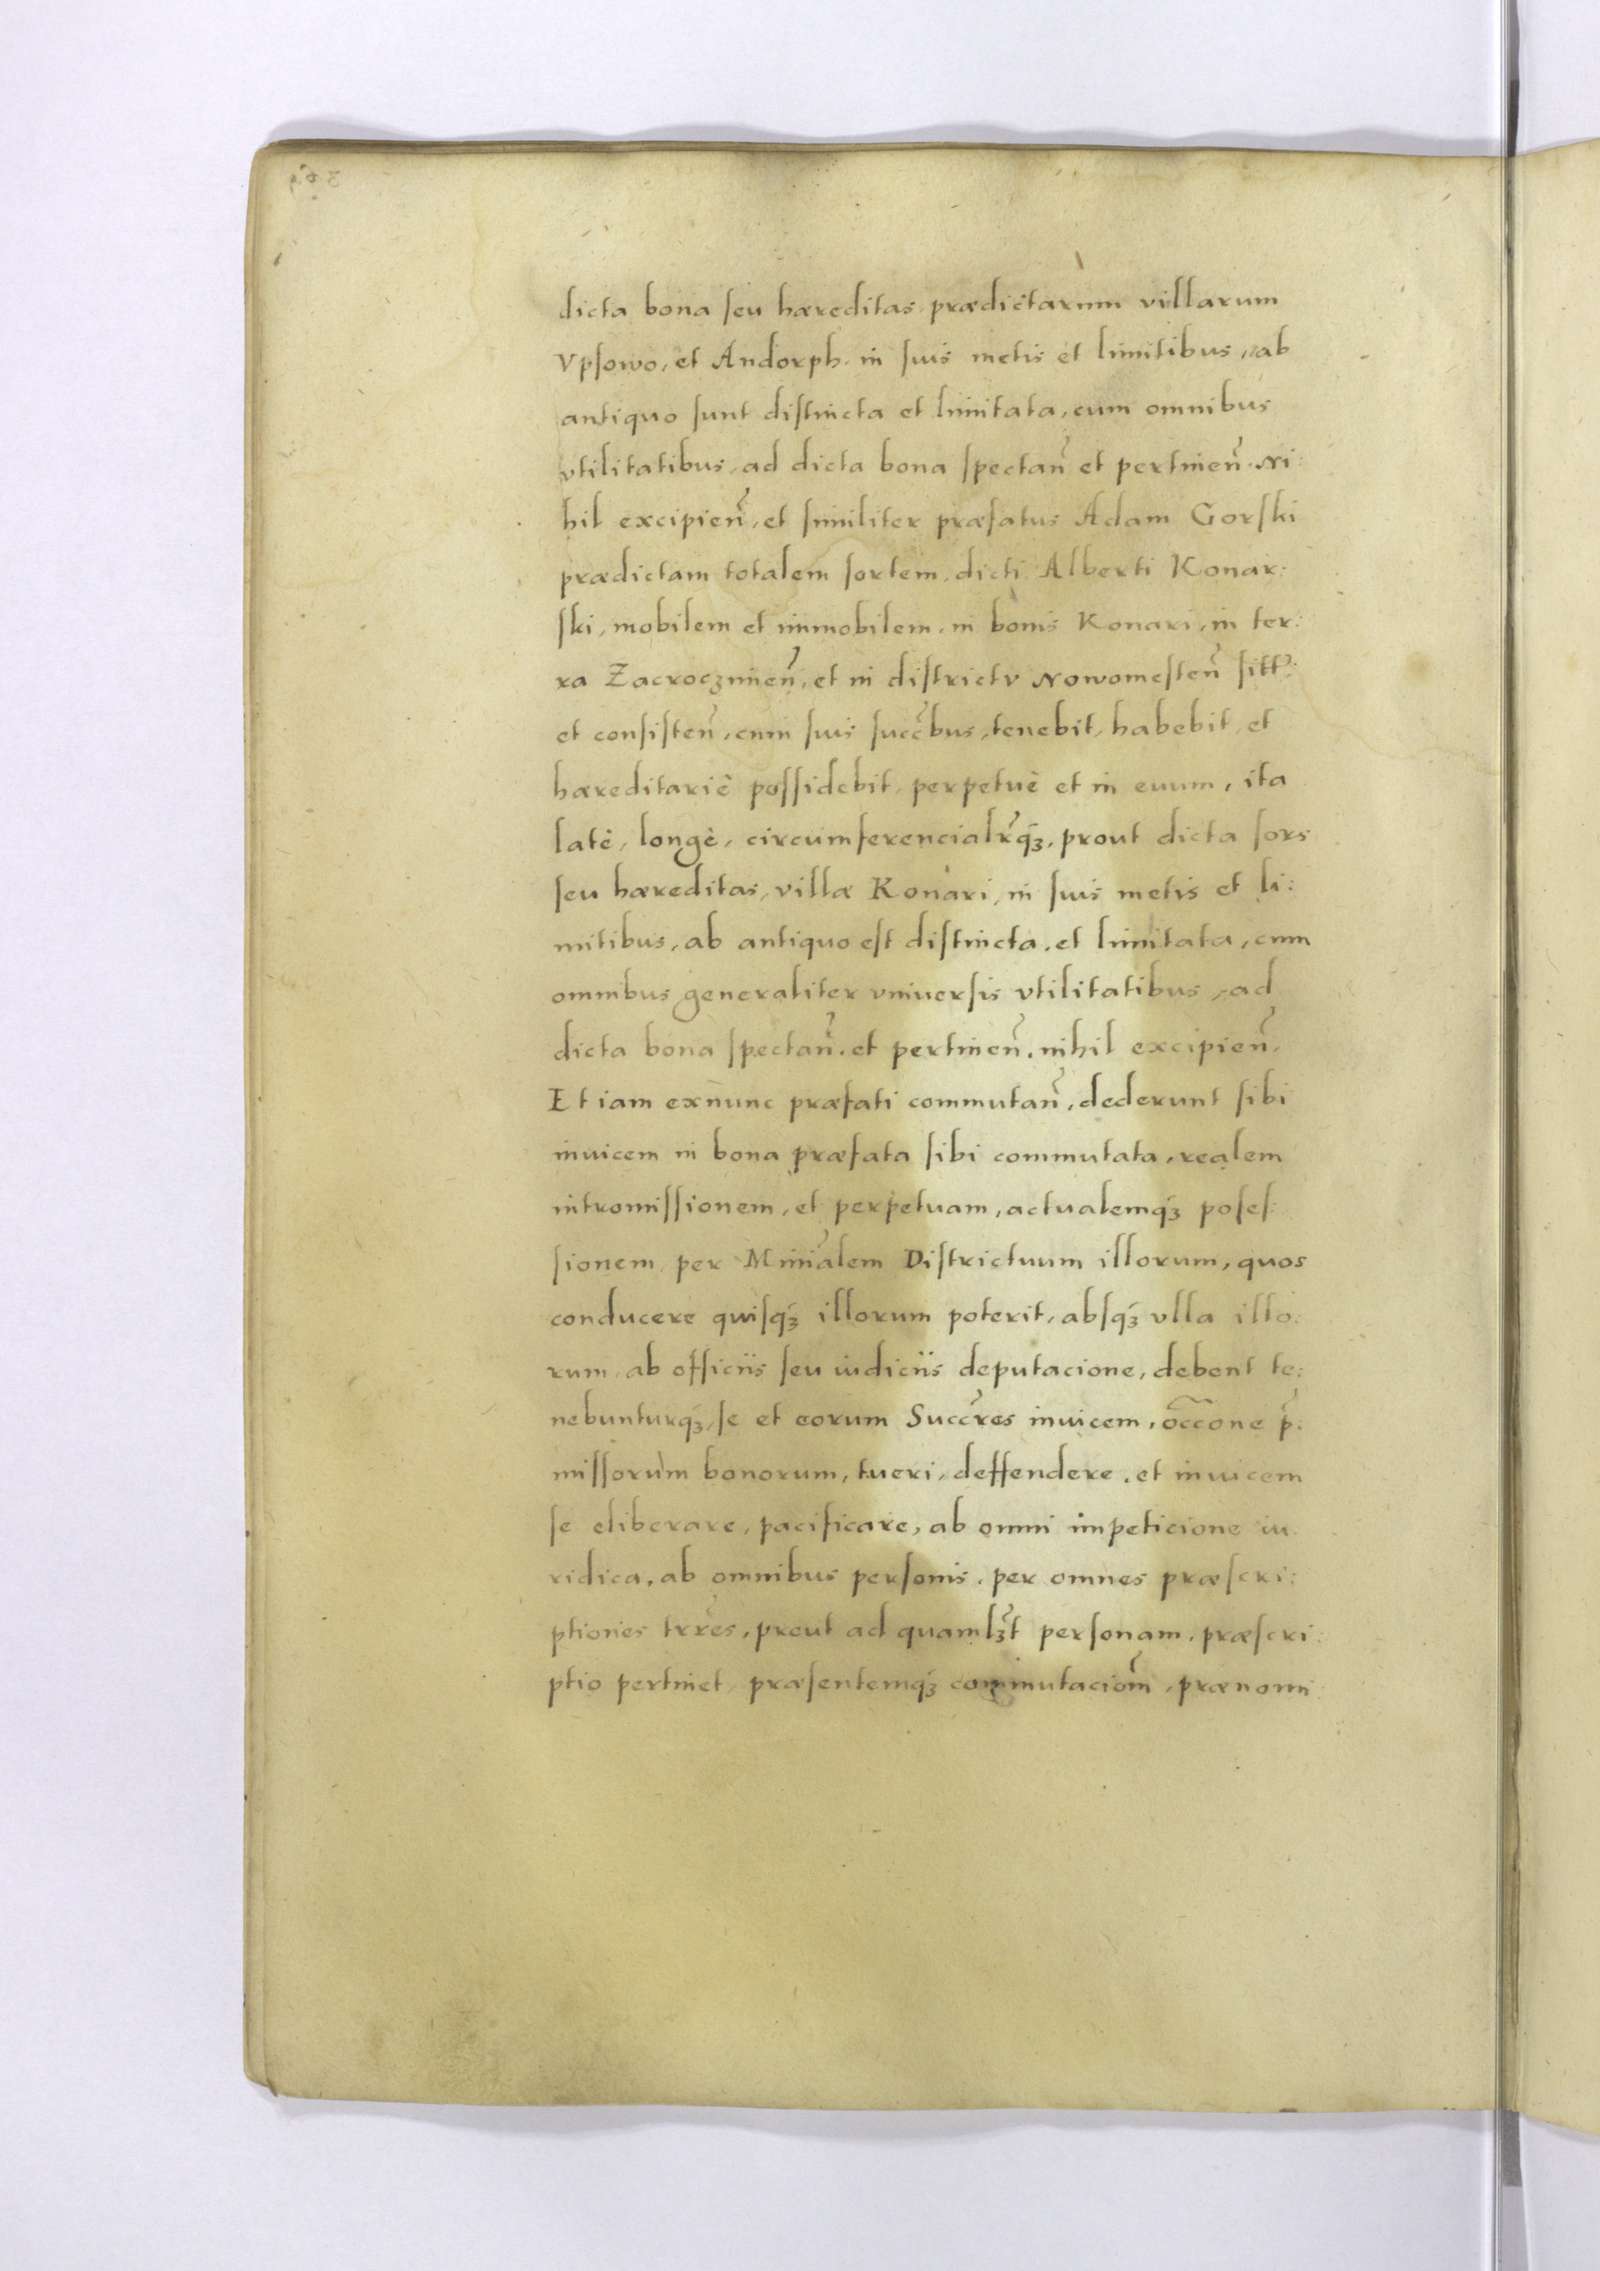 dicta bona ſeu hæreditas, prædictarum villarum
Vpſowo, et Andorph. in ſuis metis et limitibus, ab
antiquo ſunt diſtincta et limitata, cum omnibus
vtilitatibus, ad dicta bona ſpectan̄ et pertinen̄. Ni:
hil excipien̄, et ſimiliter præfatus Adam Gorſki
prædictam totalem ſortem, dicti Alberti Konar:
ſki, mobilem et immobilem, in bonis Konari, in ter:
ra Zacroczinien̄, et in diſtrictv Nowomeſten̄ ſitt:
et conſiſten̄, cum ſuis ſucc̄bus, tenebit, habebit, et
hæreditariè poſſidebit, perpetuè et in euum, ita
latè, longè, circumferencialr̄qꝫ, prout dicta ſors
ſeu hæreditas, villæ Konari, in ſuis metis et li:
mitibus, ab antiquo eſt diſtincta, et limitata, cum
omnibus generaliter vniuerſis vtilitatibus, ad
dicta bona ſpectan̄. et pertinen̄. nihil excipien̄.
Et iam exnunc præfati commutan̄, dederunt ſibi
inuicem in bona præfata ſibi commutata, realem
intromiſſionem, et perpetuam, actualemqꝫ poſeſ:
ſionem per Miniālem Diſtrictuum illorum, quos
conducere quiſqꝫ illorum poterit, abſqꝫ vlla illo:
rum, ab officiis ſeu iudiciis deputacione, debent te:
nebunturqꝫ, ſe et eorum Succr̄es inuicem, occ̄one p̄:
miſſorum bonorum, tueri, deffendere, et inuicem
ſe eliberare, pacificare, ab omni impeticione iu
ridica, ab omnibus perſonis, per omnes præſcri:
ptiones trr̄es, prout ad quamlꝫt perſonam, præſcri:
ptio pertinet, præſentemqꝫ commutaciom̄, prænomi